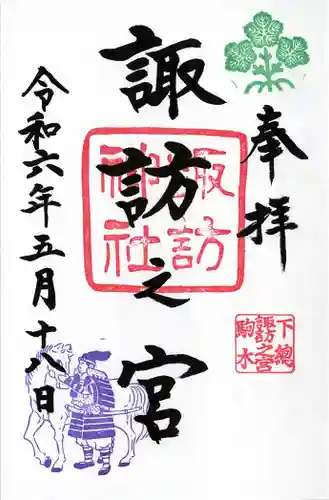 奉拝
諏訪之宮
令和六年五月十八日
諏訪
神社
下總
諏訪之宮
駒木